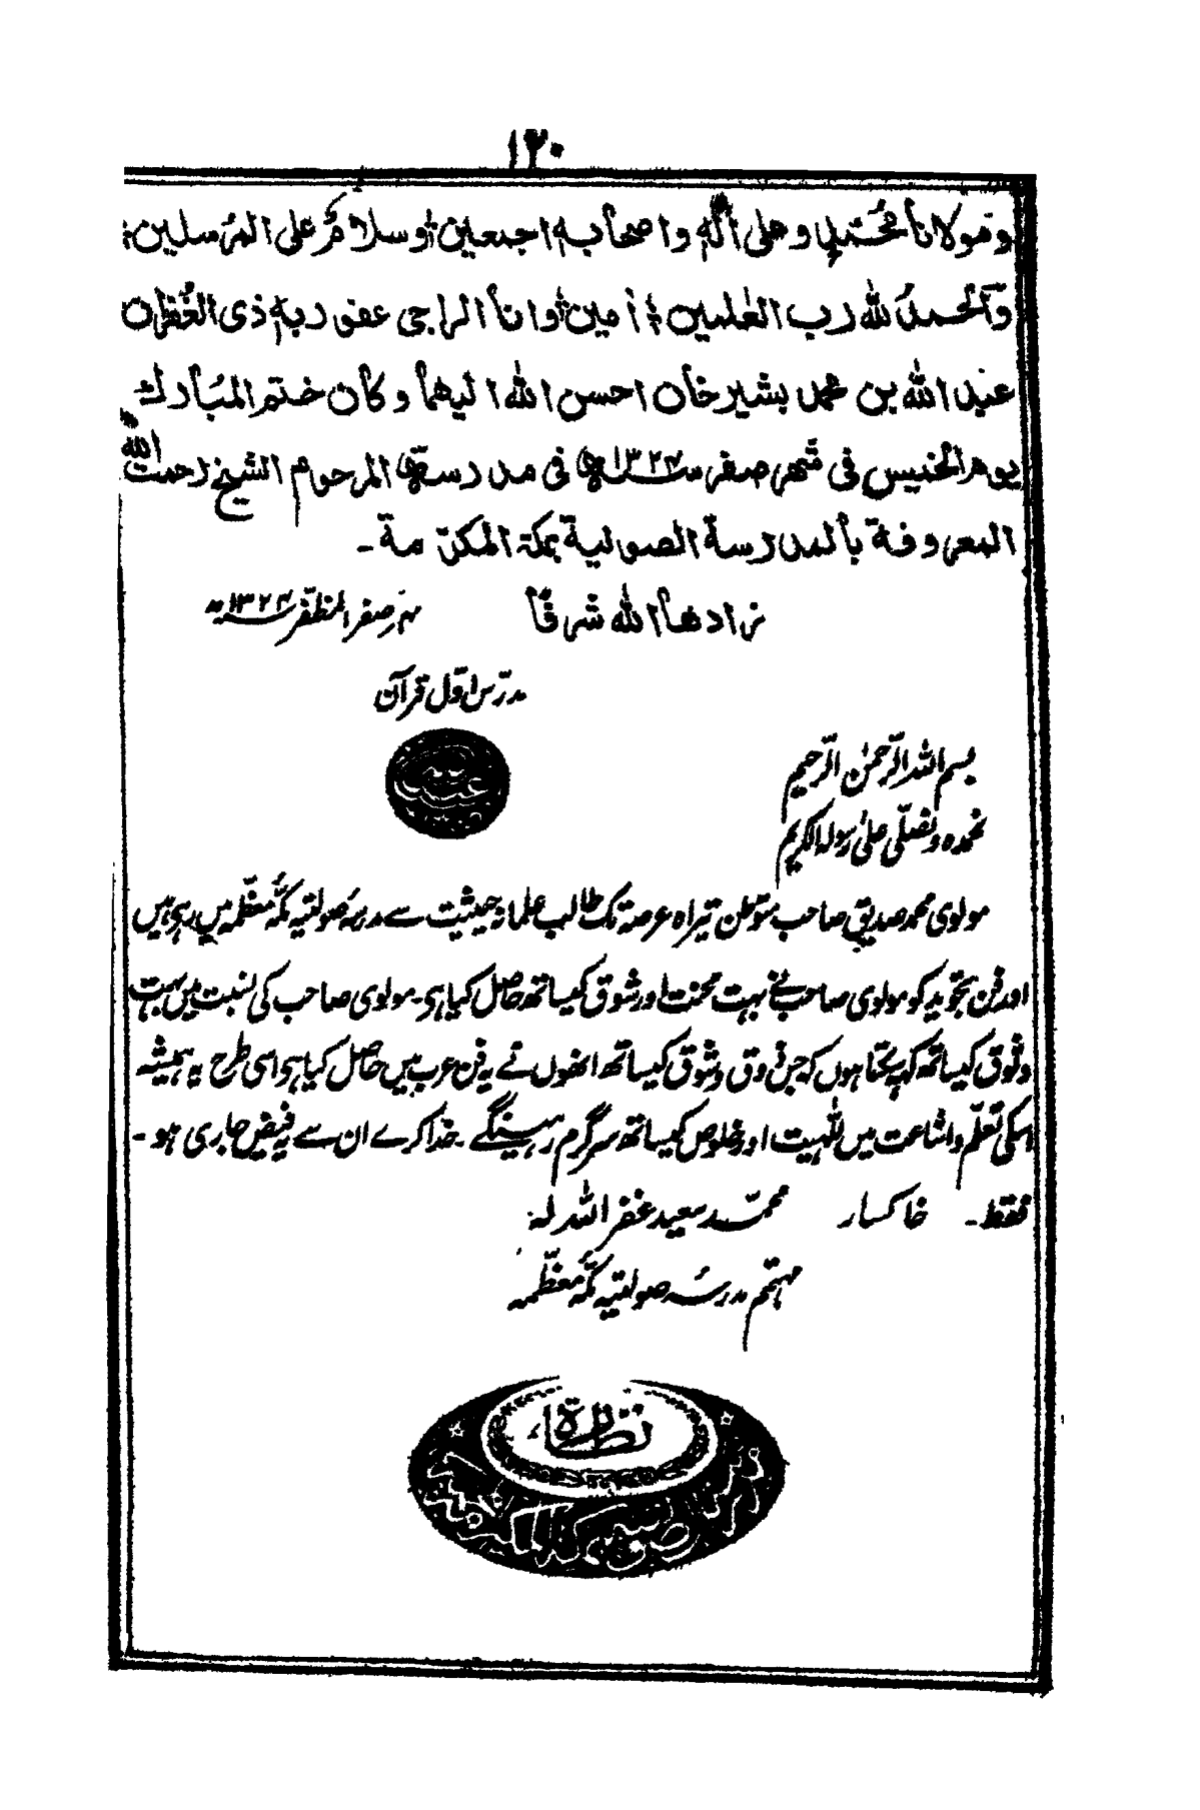 ۱۳۰
ومولانا محمد وعلى اٰله واصحابه اجمعين وسلام على المرسلين
والحمد لله رب العٰلمين اٰمين وانا الراجى عفو ربه ذى الغفران
عبد الله بن محمد بشير خان احسن الله اليهما وكان ختم المبارك
يوم الخميس فى شهر صفر سنہ ۱۳۲۴ھ فى مدرسة المرحوم الشيخ رحمت الله
المعروفة بالمدرسة الصولتية بمكة المكرّمة ۔
زادها الله شرفًا صفر المظفّر سنہ ۱۳۲۴
مدرّس اوّل قرآن
بسم اللہ الرّحمٰن الرّحیم
نحمدہ ونصلّی علیٰ رسولہ الکریم
مولوی محمد صدیق صاحب متوطن تیراہ عرصہ تک طالب علمانہ حیثیت سے مدرسہ صولتیہ مکّہ معظّمہ میں رہی ہیں
اور فن تجوید کو مولوی صاحب نے بہت محنت اور شوق کیساتھ حاصل کیا ہی۔ مولوی صاحب کی نسبت میں بہت
وثوق کیساتھ کہہ سکتا ہوں کہ جس ذوق وشوق کیساتھ انھوں نے یہ فن عرب میں حاصل کیا ہی اسی طرح یہ ہمیشہ
اسکی تعلّم واشاعت میں للّہیت اور خلوص کیساتھ سرگرم رہینگے۔ خدا کرے ان سے یہ فیض جاری ہو۔
فقط۔ خاکسار محمّد سعید غفر اللہ لہ
مہتمم مدرسہ صولتیہ مکّہ معظّمہ
نظارة